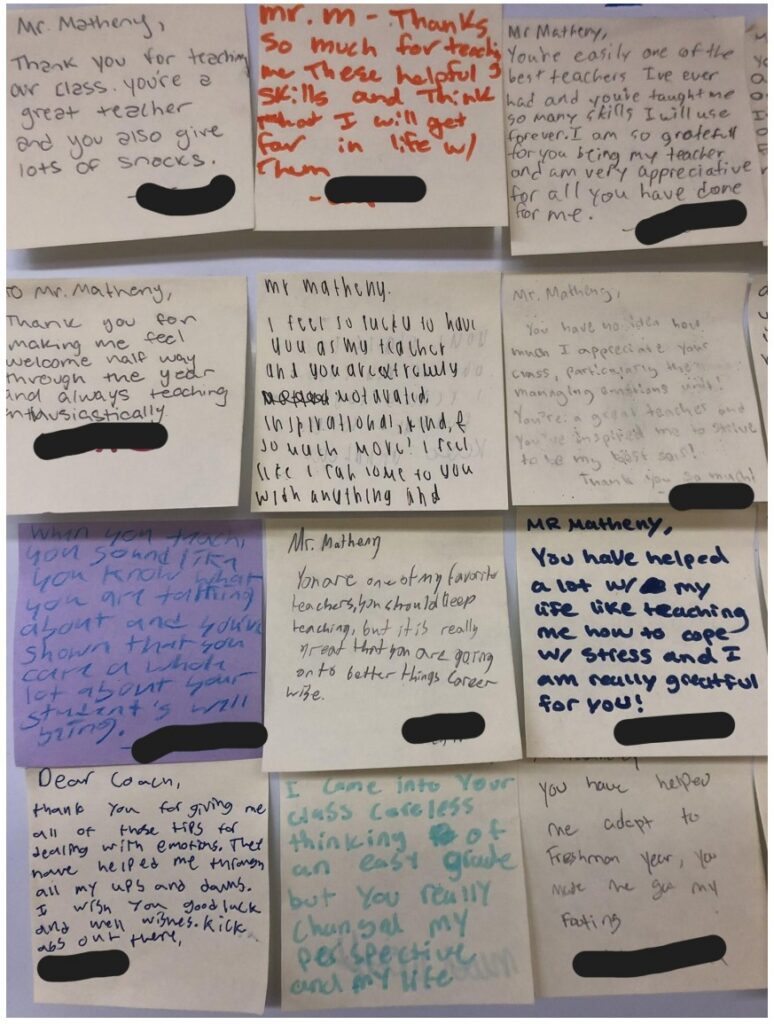 Mr. Matheny,
Thank you for teaching
our class. you're a
great teacher
and you also give
lots of snacks.
mr. m - Thanks
so much for teaching
me These helpful
skills and Think
that I will get
far in life w/
Them
Mr Matheny,
You're easily one of the
best teachers I've ever
had and you've taught me
so many skills I will use
forever. I am so grateful
for you being my teacher
and am very appreciative
for all you have done
for me.
To Mr. Matheny,
Thank you for
making me feel
welcome half way
through the year
and always teaching
enthusiastically
mr matheny.
I feel so lucky to have
you as my teacher
and you are extremely
motavated,
inspirational, kind, &
so much more! I feel
like I can come to you
with anything and
Mr. Matheny,
You have no idea how
much I appreciate your
class, particularly the
managing emotions unit!
You're a great teacher and
You've inspired me to strive
to be my best self!
Thank you so much!
When you teach,
you sound like
you know what
you are talking
about and you've
shown that you
care a whole
lot about your
student's well
being.
Mr. Matheny
You are one of my favorite
teachers, you should keep
teaching, but it is really
great that you are going
onto better things career
wise.
MR Matheny,
You have helped
a lot w/ my
life like teaching
me how to cope
w/ stress and I
am really greatful
for you!
Dear Coach,
thank you for giving me
all of those tips for
dealing with emotions. They
have helped me through
all my ups and downs.
I wish you good luck
and well wishes. kick
abs out there,
I came into your
class careless
thinking of
an easy grade
but you really
changed my
perspective
and my life
you have helped
me adapt to
Freshman year, you
made me get my
footing